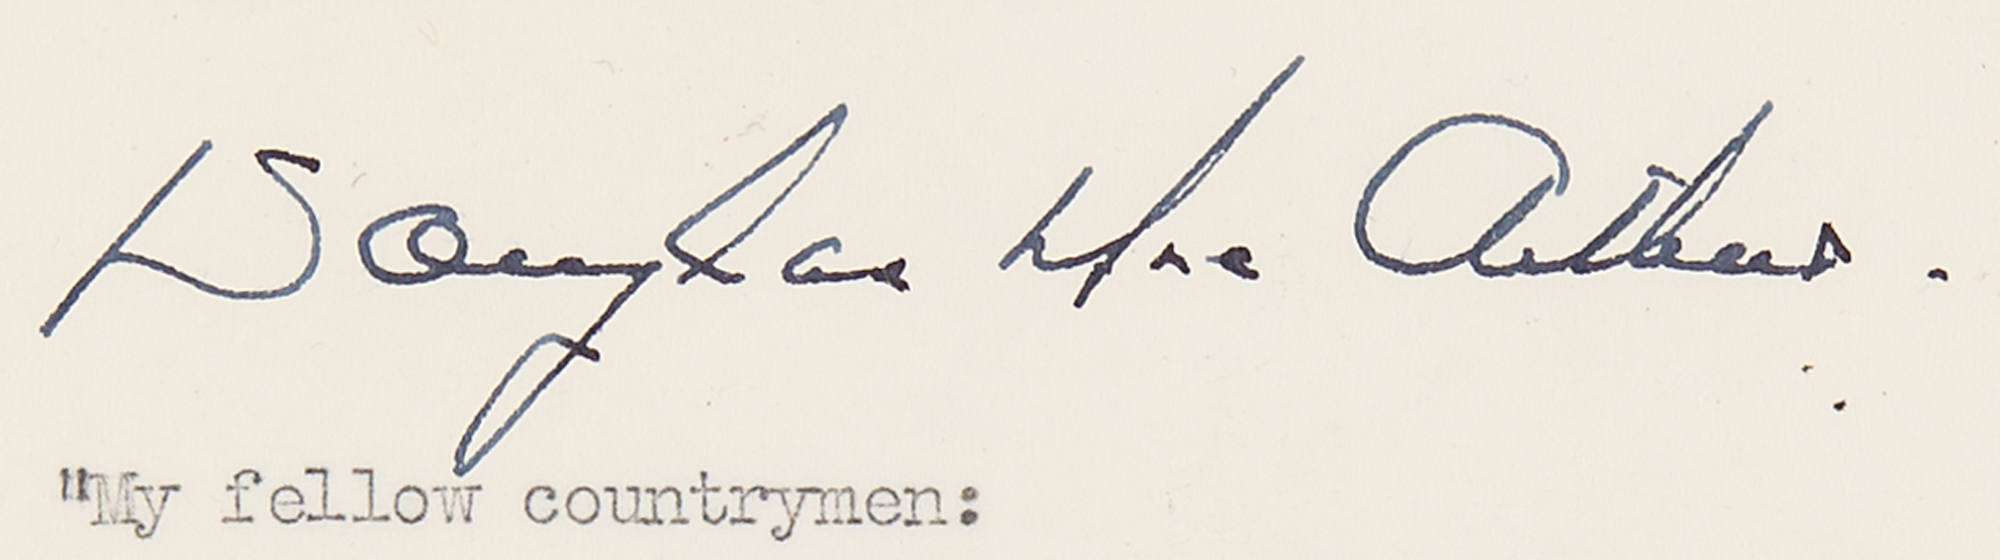 Douglas MacArthur.
"My fellow countrymen: